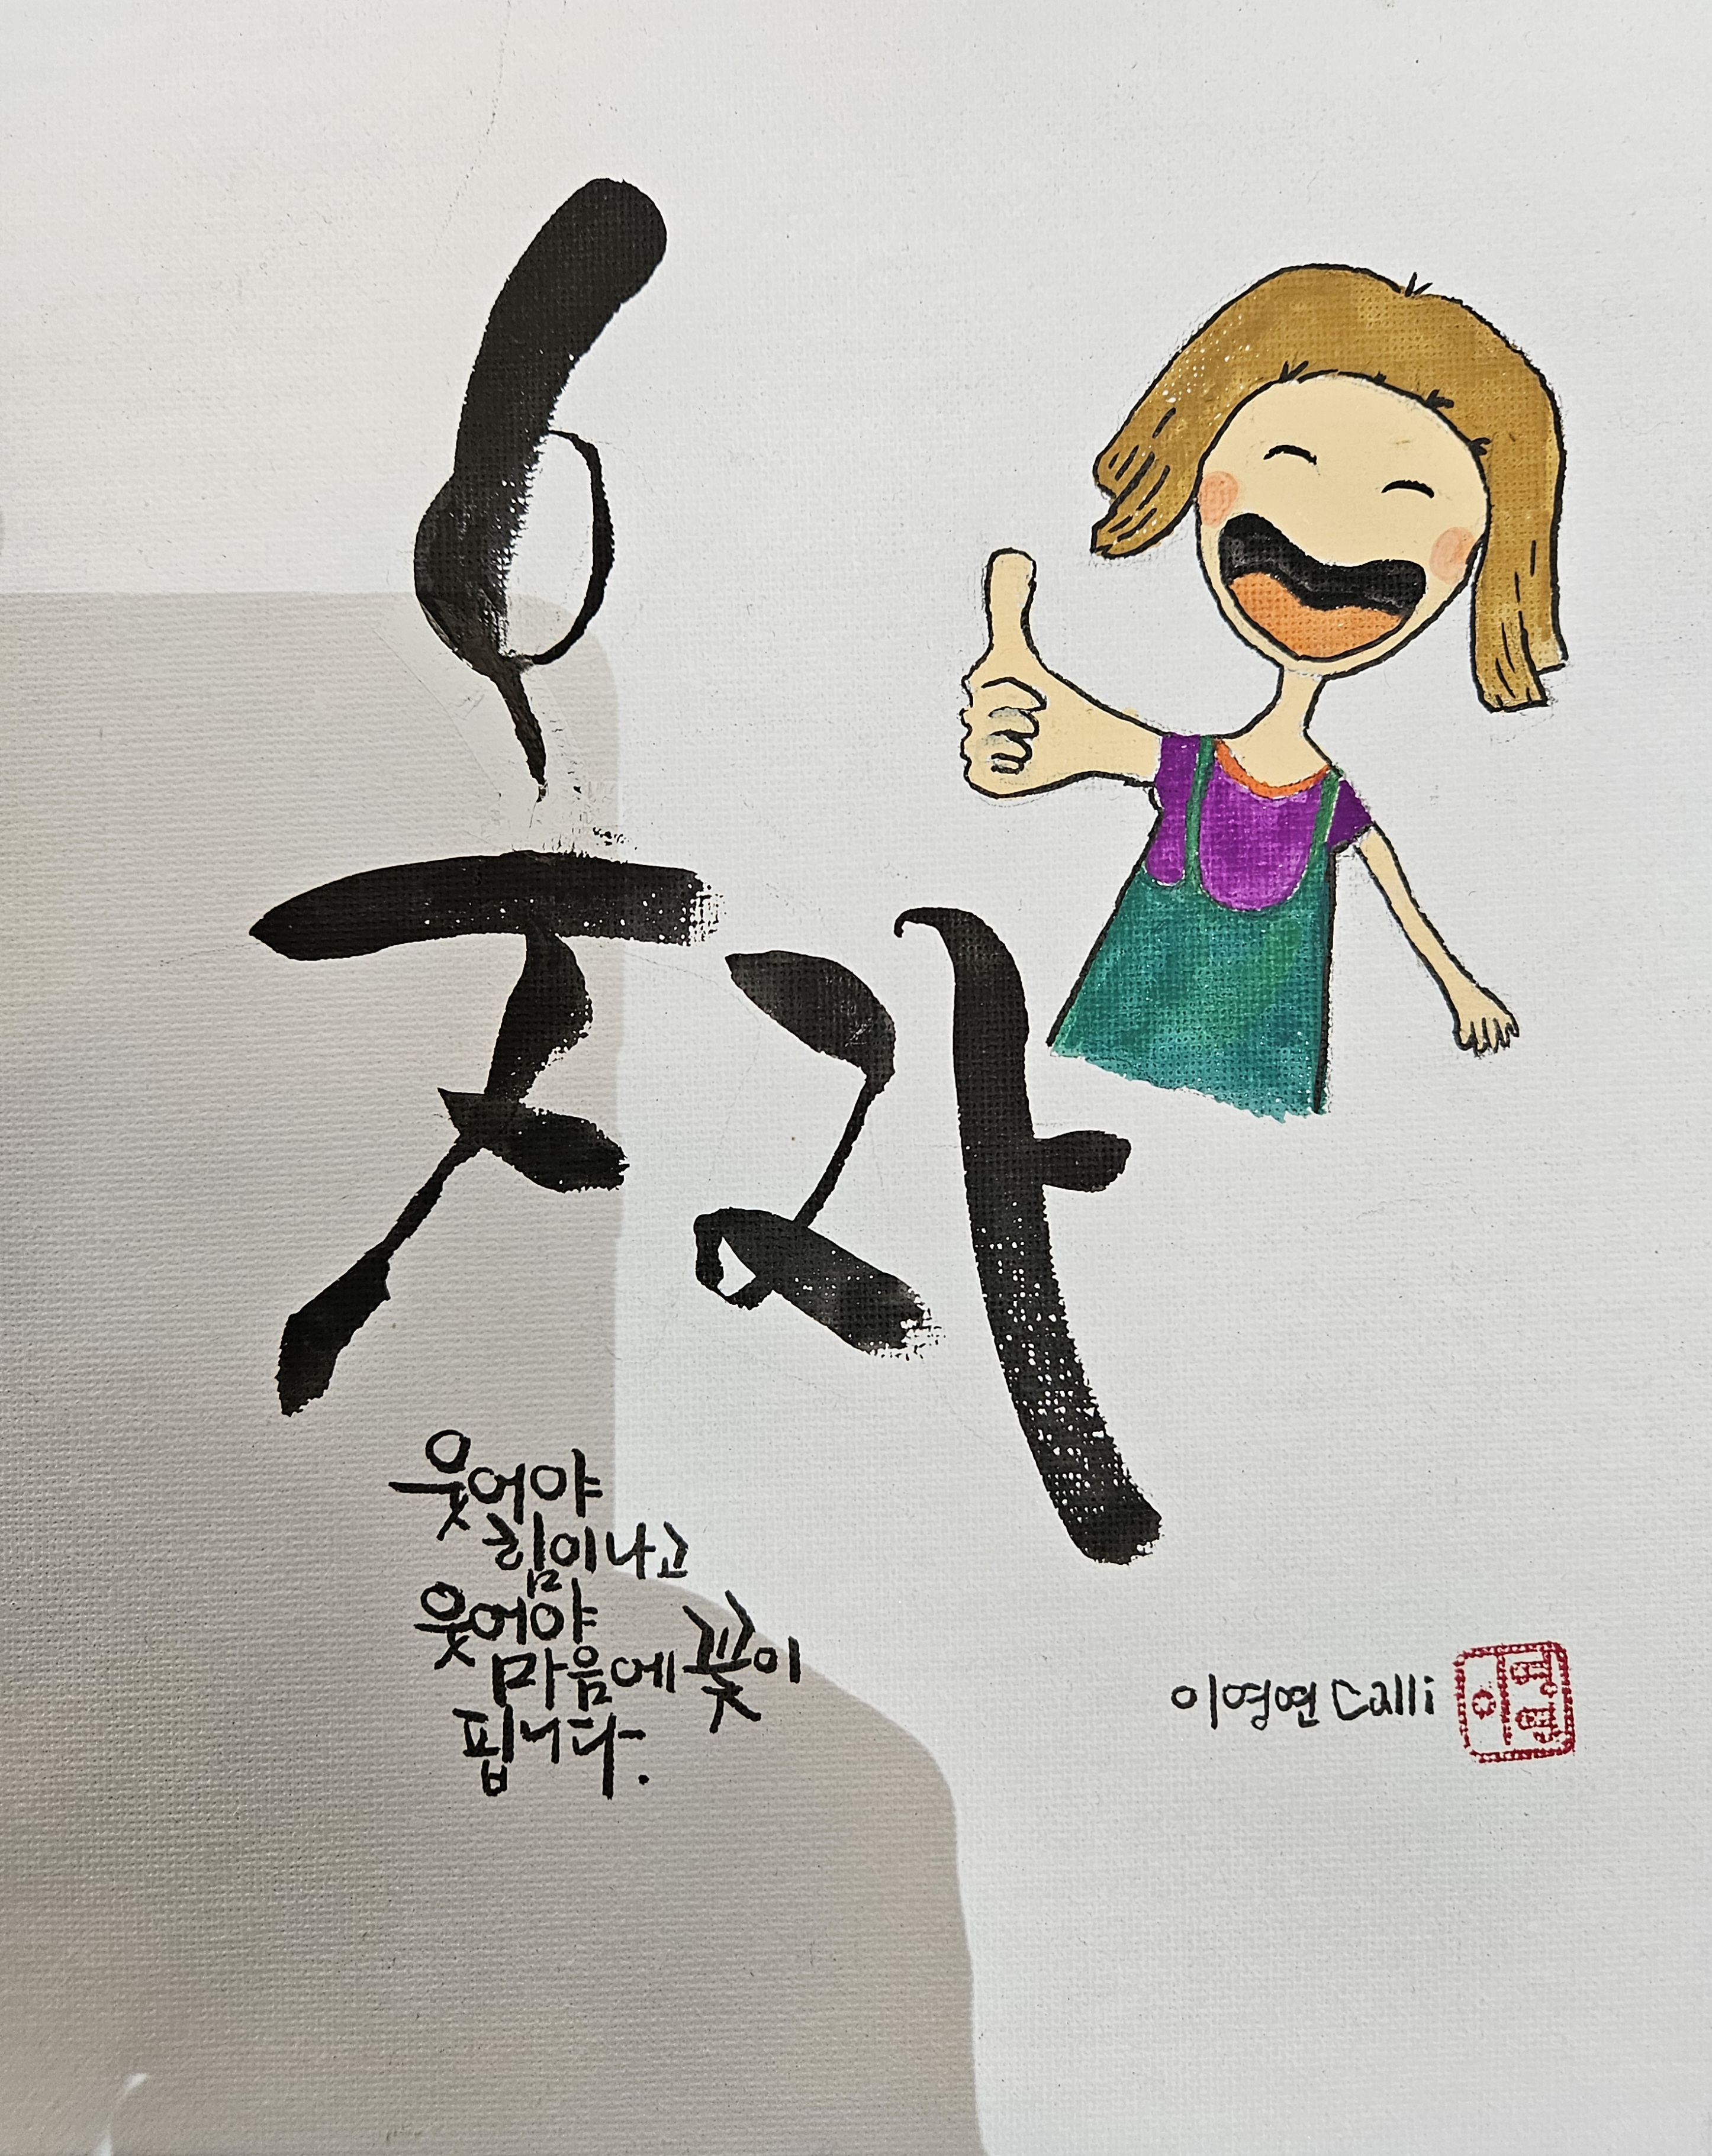 웃자
웃어야
힘이나고
웃어야
마음에 꽃이
핍니다.
이영연 Calli